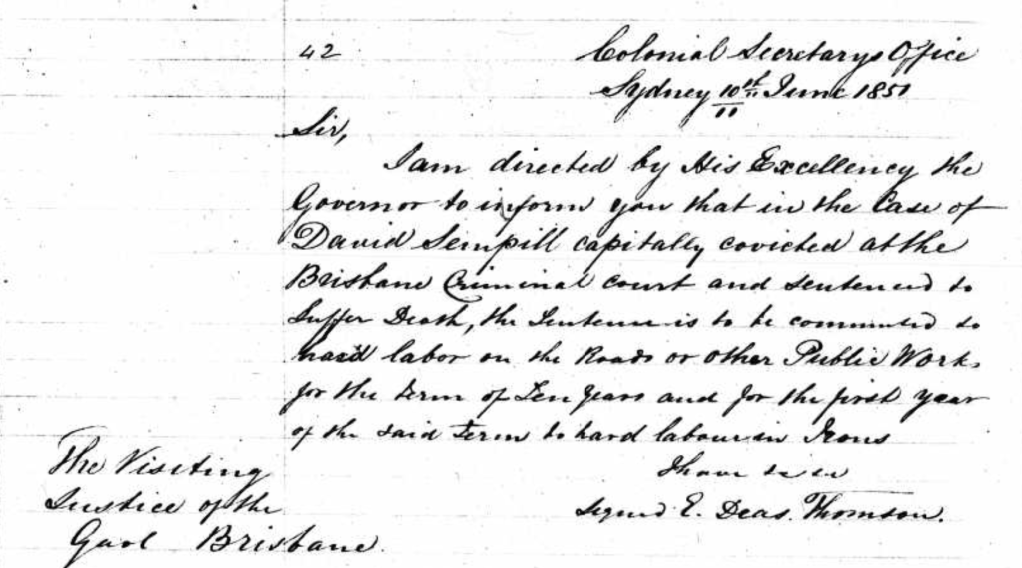 42
Colonial Secretarys Office
Sydney 10th June 1851
11
Sir,
I am directed by His Excellency the
Governor to inform you that in the Case of
David Sempill capitally covicted at the
Brisbane Criminal court and sentenced to
Suffer Death, the Sentence is to be commuted to
hard labor on the Roads or other Public Works
for the term of Ten years and for the first year
of the said Term to hard labour in Irons
I have
Signed E. Deas. Thomson.
The Visiting
Justice of the
Gaol Brisbane.